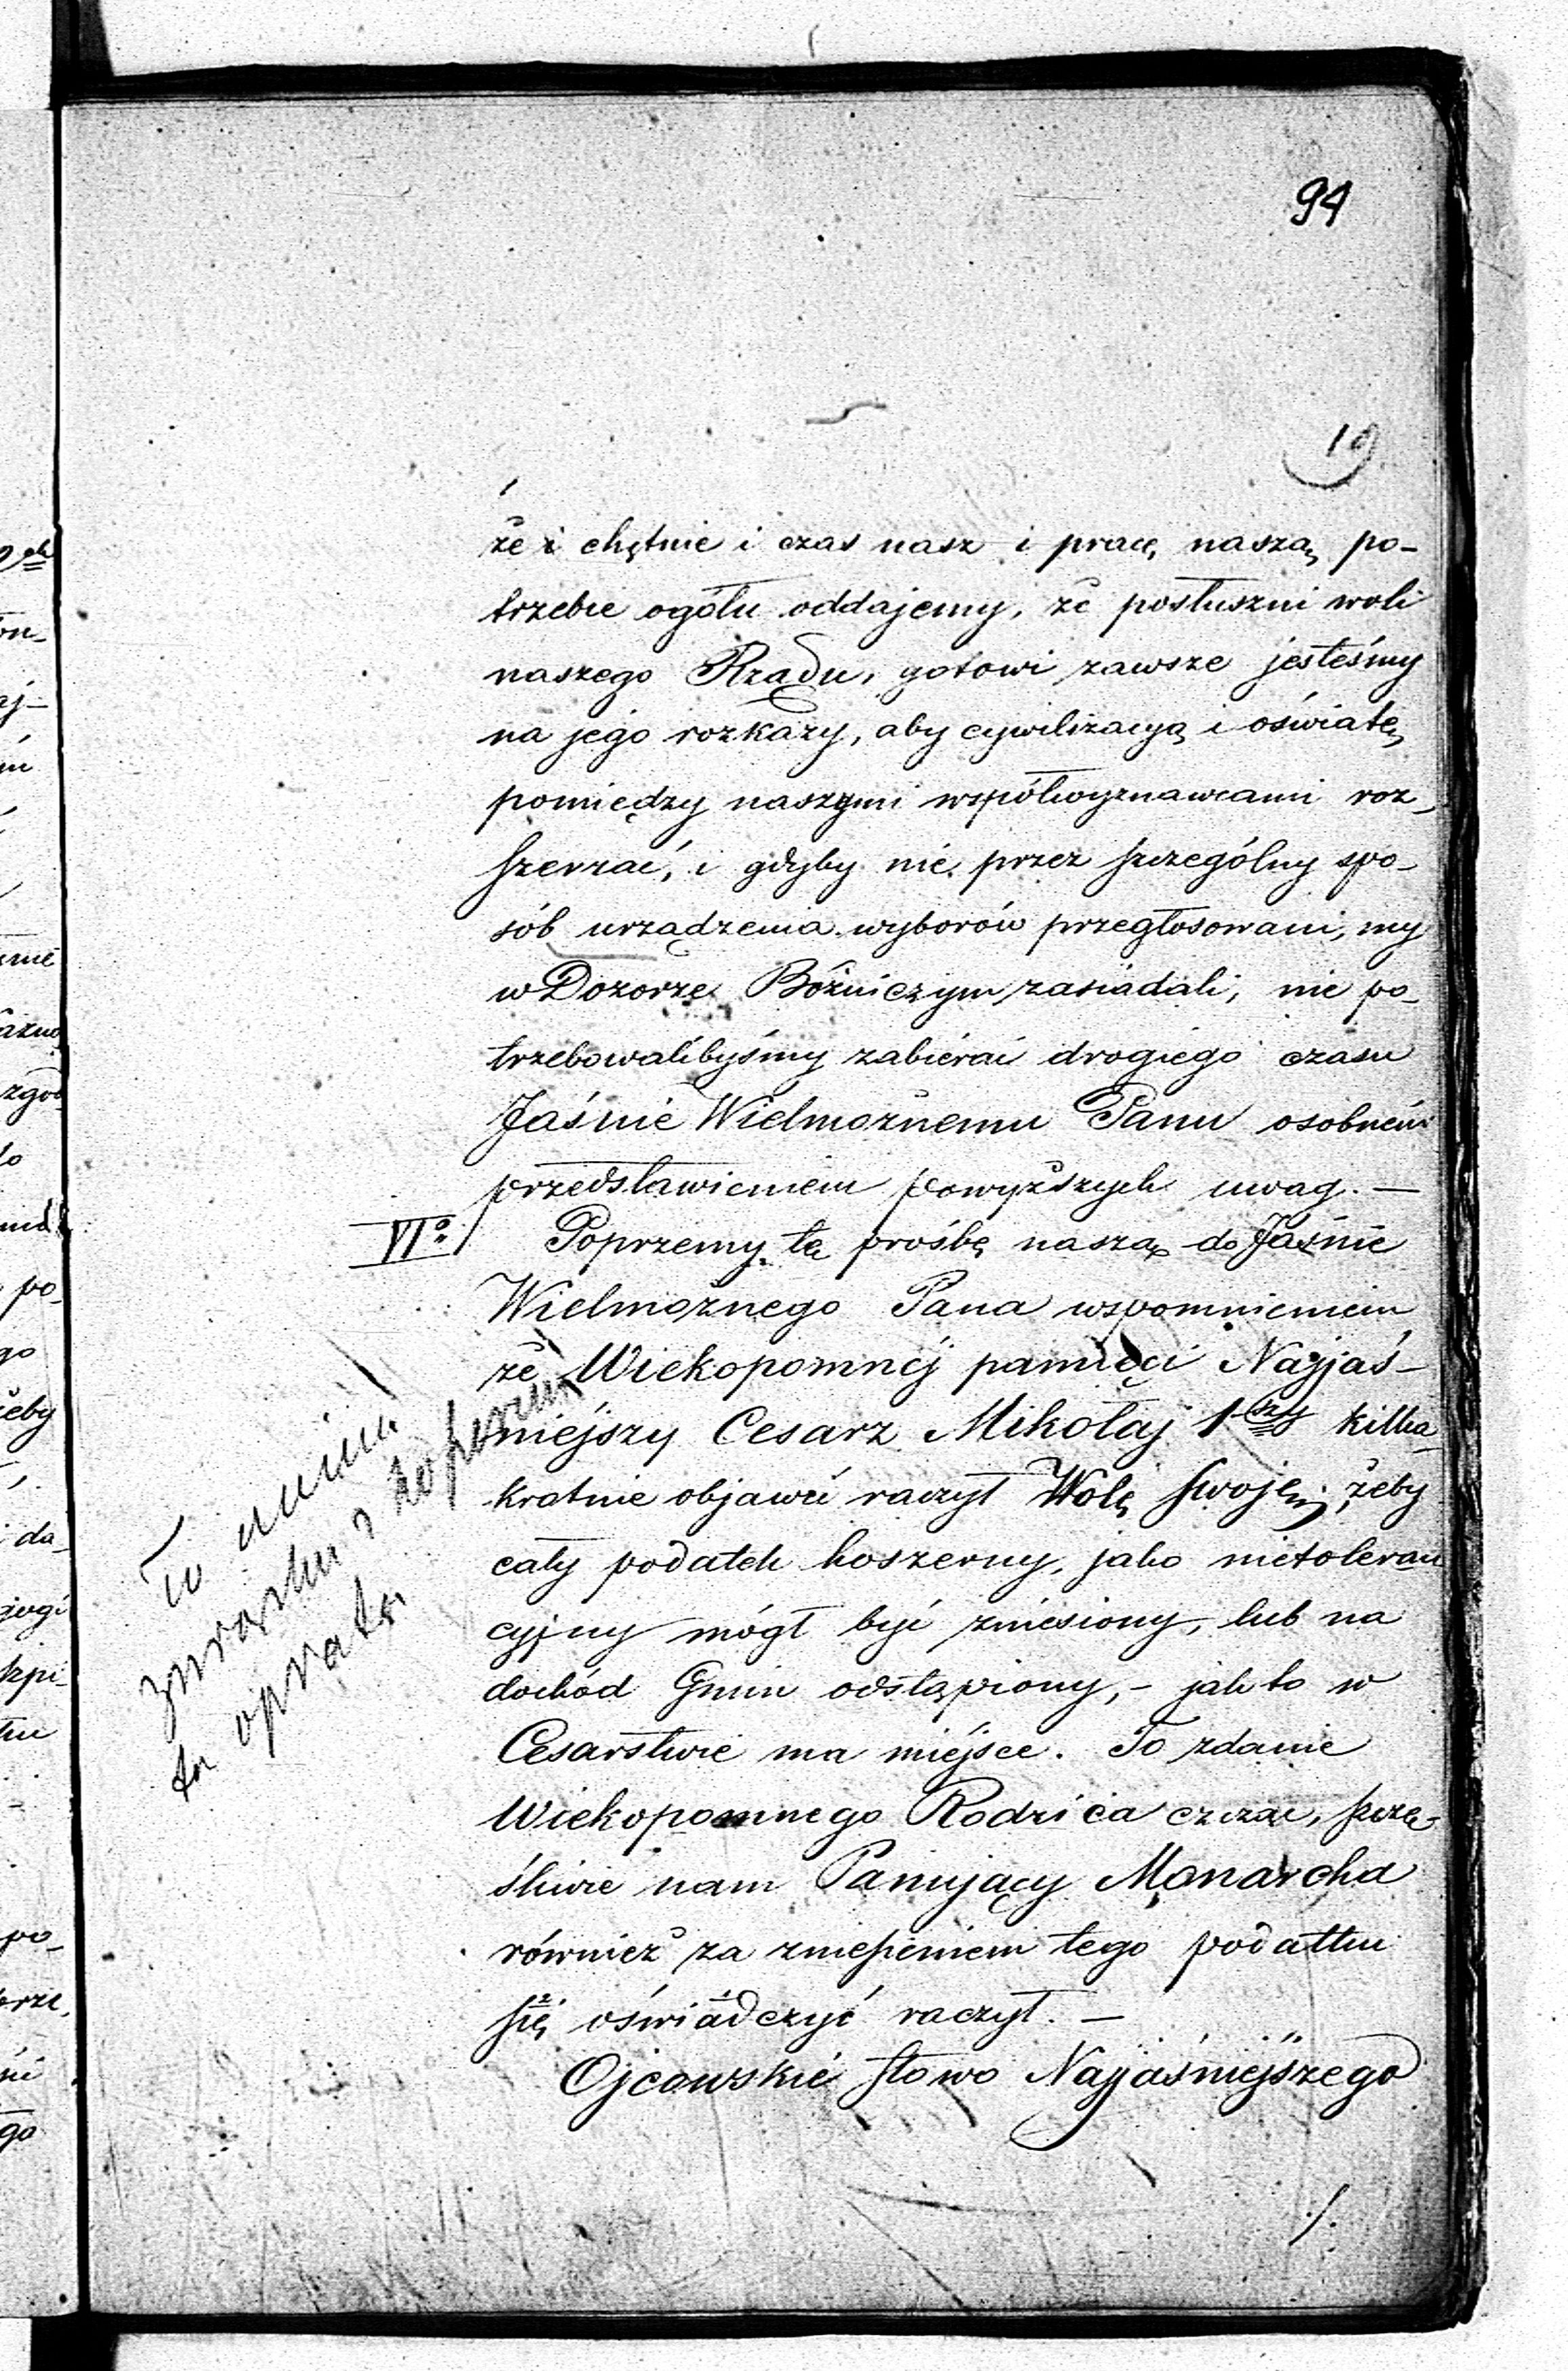 94
19
że i chętnie i czas nasz i pracę naszą po-
trzebie ogółu oddajemy, że posłuszni woli
naszego Rządu, gotowi zawsze jesteśmy
na jego rozkazy, aby cywilizacyą i oświatę
pomiędzy naszymi współwyznawcami roz-
szerzać, i gdyby nie przez szczególny spo-
sób urządzenia wyborów przegłosowani, my
w Dozorze Bóżniczym zasiadali, nie po-
trzebowalibyśmy zabiérać drogiego czasu
Jaśnie Wielmożnemu Panu osobném
przedstawieniem powyższych uwag. —
VIº Poprzemy tę prośbę naszą do Jaśnie
Wielmożnego Pana wspomnieniem
że Wiekopomnéj pamięci Najjaś-
niejszy Cesarz Mikołaj 1szy kilka-
kratnie objawić raczył Wolę Swoję, żeby
cały podatek koszerny, jako nietoleran
cyjny mógł być zniesiony, lub na
dochód Gmin odstąpiony, – jak to w
Cesarstwie ma miéjsce. To zdanie
Wiekopomnego Rodzica czcząc, szczę-
śliwie nam Panujący Monarcha
również za zniesieniem tego podatku
się oświadczyć raczył. —
Ojcowskie słowo Najjaśniejszego
To
związku z
ta opłata